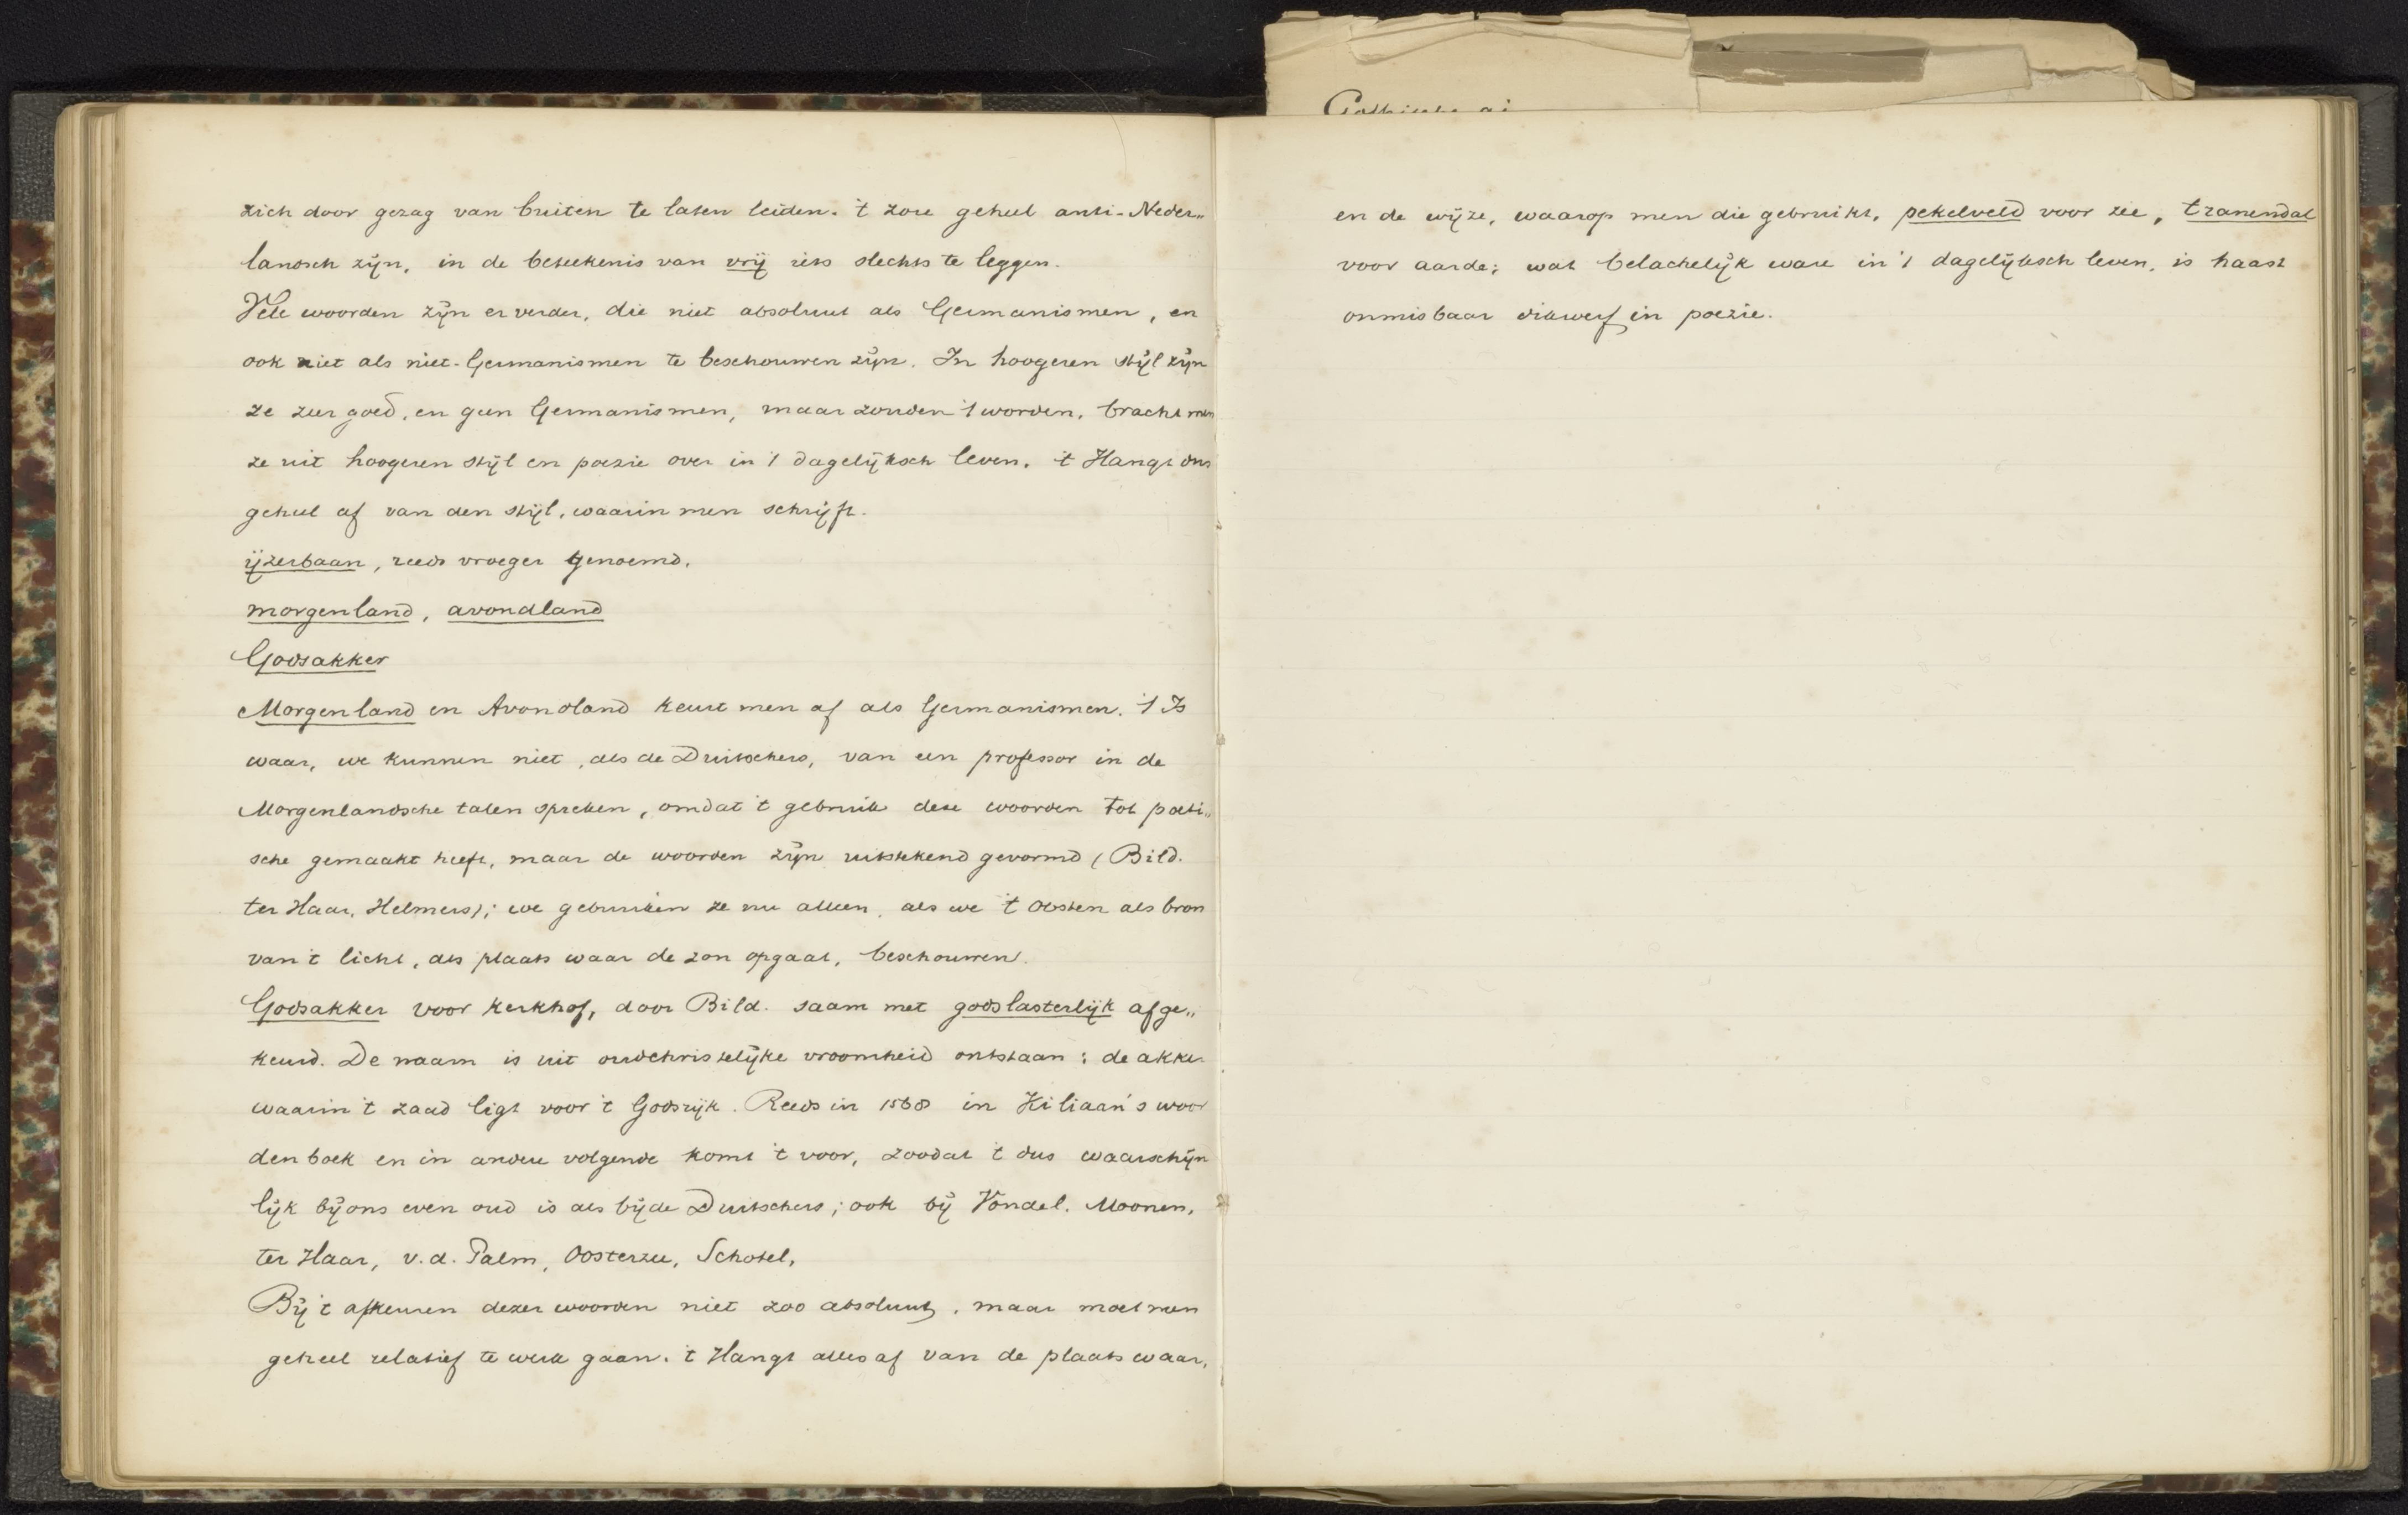 Gothische ai
zich door gezag van buiten te laten leiden. 't zou geheel anti-Neder„
landsch zijn, in de beteekenis van vrij iets slechts te leggen.
Vele woorden zijn er verder, die niet absoluut als Germanismen, en
ook niet als niet-Germanismen te beschouwen zijn. In hoogeren stijl zijn
ze zeer goed, en geen Germanismen, maar zouden 't worden, bracht men
ze uit hoogeren stijl en poezie over in 't dagelijksch leven. 't Hangt dus
geheel af van den stijl, waarin men schrijft.
ijzerbaan, reeds vroeger genoemd.
morgenland, avondland
Godsakker
Morgenland en Avondland keurt men af als Germanismen. 't Is
waar, we kunnen niet, als de Duitschers, van een professor in de
Morgenlandsche talen spreken, omdat 't gebruik deze woorden tot poëti„
sche gemaakt heeft, maar de woorden zijn uitstekend gevormd (Bild.
ter Haar, Helmers); we gebruiken ze nu alleen, als we 't Oosten als bron
van 't licht, als plaats waar de zon opgaat, beschouwen.
Godsakker voor kerkhof, door Bild. saam met godslasterlijk afge„
keurd. De naam is uit oudchristelijke vroomheid ontstaan: de akker
waarin 't zaad ligt voor 't Godsrijk. Reeds in 1568 in Kiliaan's woor
denboek en in andere volgende komt 't voor, zoodat 't dus waarschijn
lijk bij ons even oud is als bij de Duitschers; ook bij Vondel. Moonen,
ter Haar, v.d. Palm, Oosterzee, Schotel,
Bij 't afkeuren dezer woorden niet zoo absoluut, maar moet men
geheel relatief te werk gaan. 't Hangt alles af van de plaats waar,
en de wijze, waarop men die gebruikt, pekelveld voor zee, tranendal
voor aarde; wat belachelijk ware in 't dagelijksch leven, is haast
onmisbaar dikwerf in poezie.